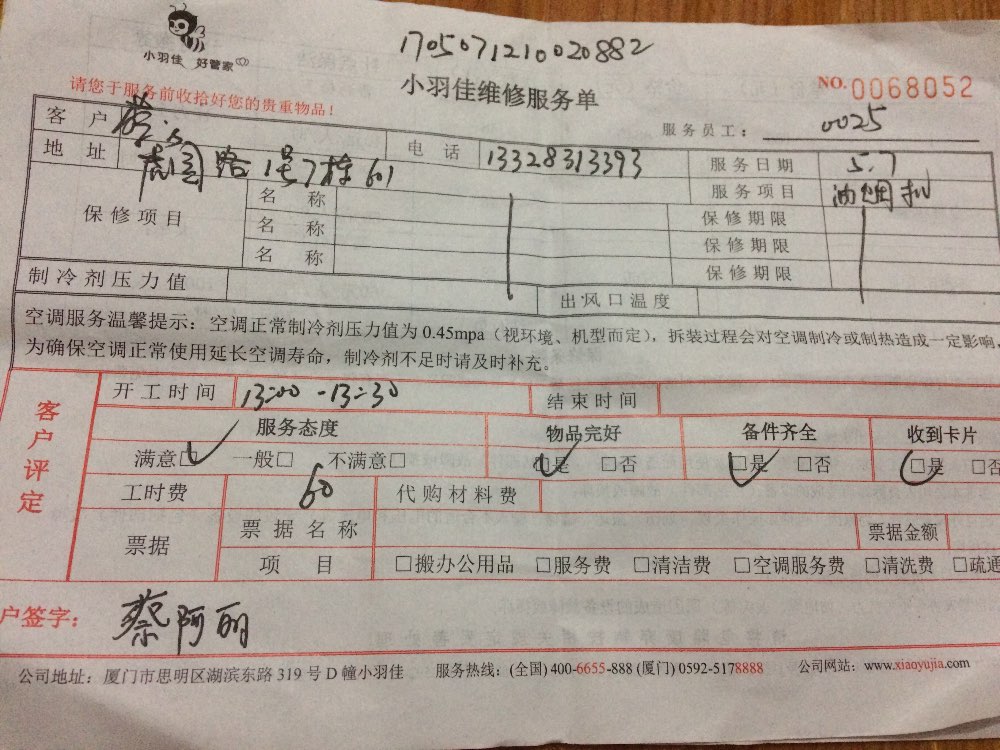 小羽佳 好管家
1705071210020882
小羽佳维修服务单
NO.0068052
请您于服务前收拾好您的贵重物品！
服务员工： 0025
客户 蔡
电话 13328313393
服务日期 5.7
地址 虎园路1号7栋601
服务项目 油烟机
保修项目
名称 保修期限
名称 保修期限
名称 保修期限
制冷剂压力值 出风口温度
空调服务温馨提示：空调正常制冷剂压力值为 0.45mpa（视环境、机型而定），拆装过程会对空调制冷或制热造成一定影响，
为确保空调正常使用延长空调寿命，制冷剂不足时请及时补充。
客户评定
开工时间 13:00-13:30 结束时间
服务态度 物品完好 备件齐全 收到卡片
满意□ 一般□ 不满意□ □是 □否 □是 □否 □是 □否
工时费 60 代购材料费
票据 票据名称 票据金额
项目 □搬办公用品 □服务费 □清洁费 □空调服务费 □清洗费 □疏通
户签字： 蔡阿丽
公司地址：厦门市思明区湖滨东路 319 号 D 幢小羽佳 服务热线：(全国) 400-6655-888 (厦门) 0592-5178888 公司网站：www.xiaoyujia.com